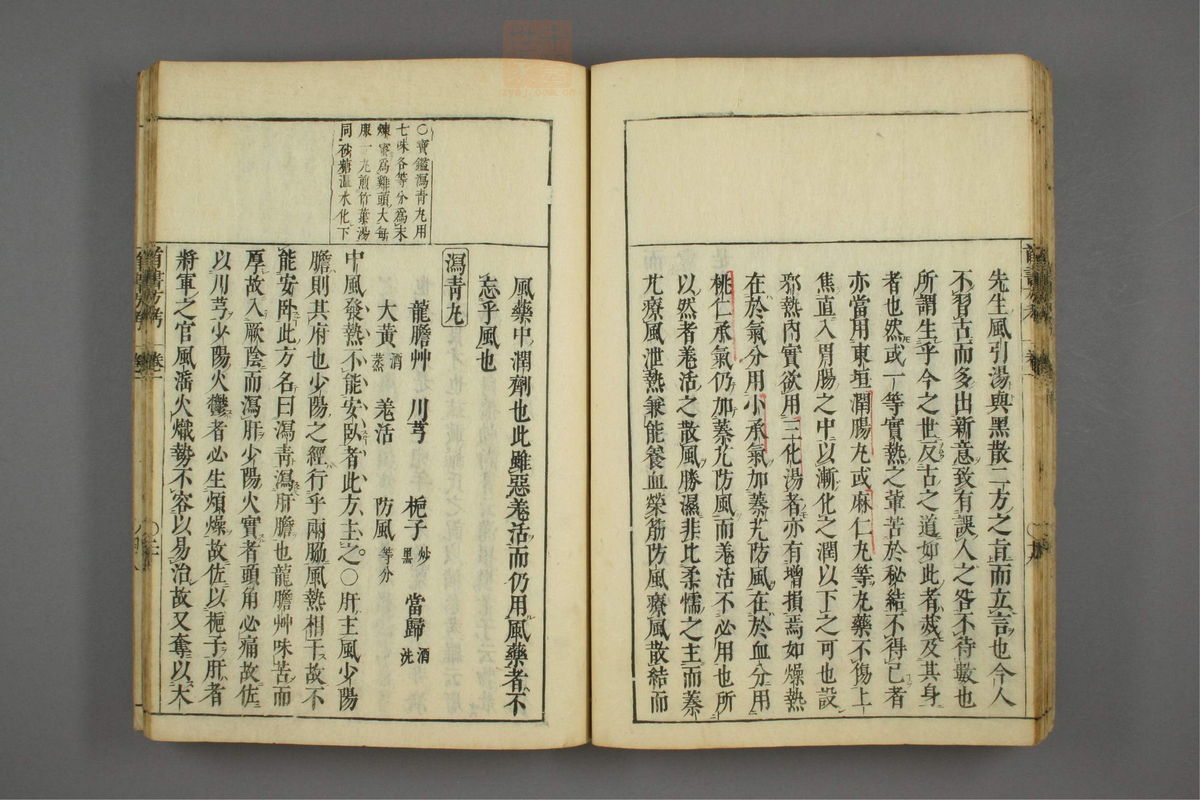 先生風引湯與黑散二方之旨而立言也今人
不習古而多出新意致有誤人之咎不待數也
所謂生乎今之世反古之道如此者烖及其身
者也然或一等實熱之輩苦於秘結不得已者
亦當用東垣潤腸丸或麻仁丸等丸藥不傷上
焦直入胃腸之中以漸化之潤以下之可也設
邪熱內實欲用三化湯者亦有增損焉如燥熱
在於氣分用小承氣加蓁艽防風在於血分用
桃仁承氣仍加蓁艽防風而羗活不必用也所
以然者羗活之散風勝濕非比柔懦之主而蓁
艽療風泄熱兼能養血榮筋防風療風散結而
風藥中潤劑也此雖惡羗活而仍用風藥者不
忘乎風也
○寶鑑瀉青丸用
七味各等分爲末
煉蜜爲雞頭大每
服一丸煎竹葉湯
同砂糖温水化下
瀉青丸
龍膽艸 川芎 梔子炒黑 當歸酒洗
大黃酒蒸 羗活 防風等分
中風發熱不能安臥者此方主之○肝主風少陽
膽則其府也少陽之經行乎兩脇風熱相干故不
能安臥此方名曰瀉青瀉肝膽也龍膽艸味苦而
厚故入厥陰而瀉肝少陽火實者頭角必痛故佐
以川芎少陽火鬱者必生煩燥故佐以梔子肝者
將軍之官風滛火熾勢不容以易治故又奪以大